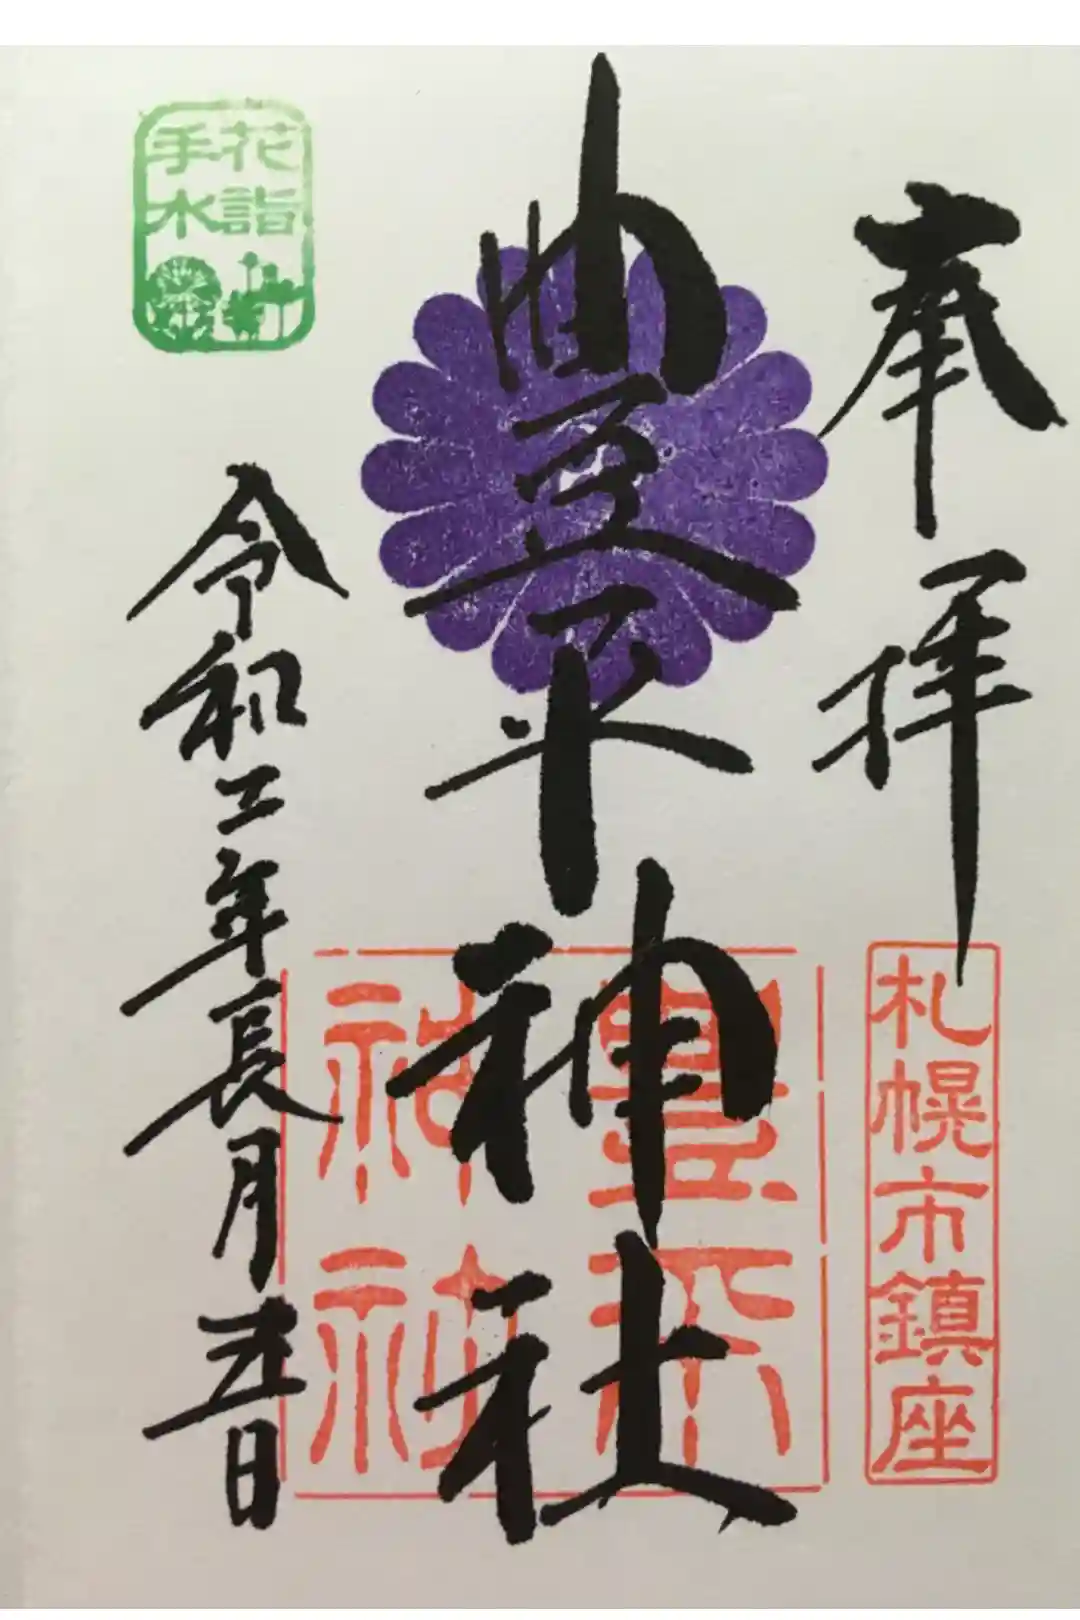 奉拝
札幌市鎮座
豊平神社
豊平
神社
花詣
手水
令和二年長月
日